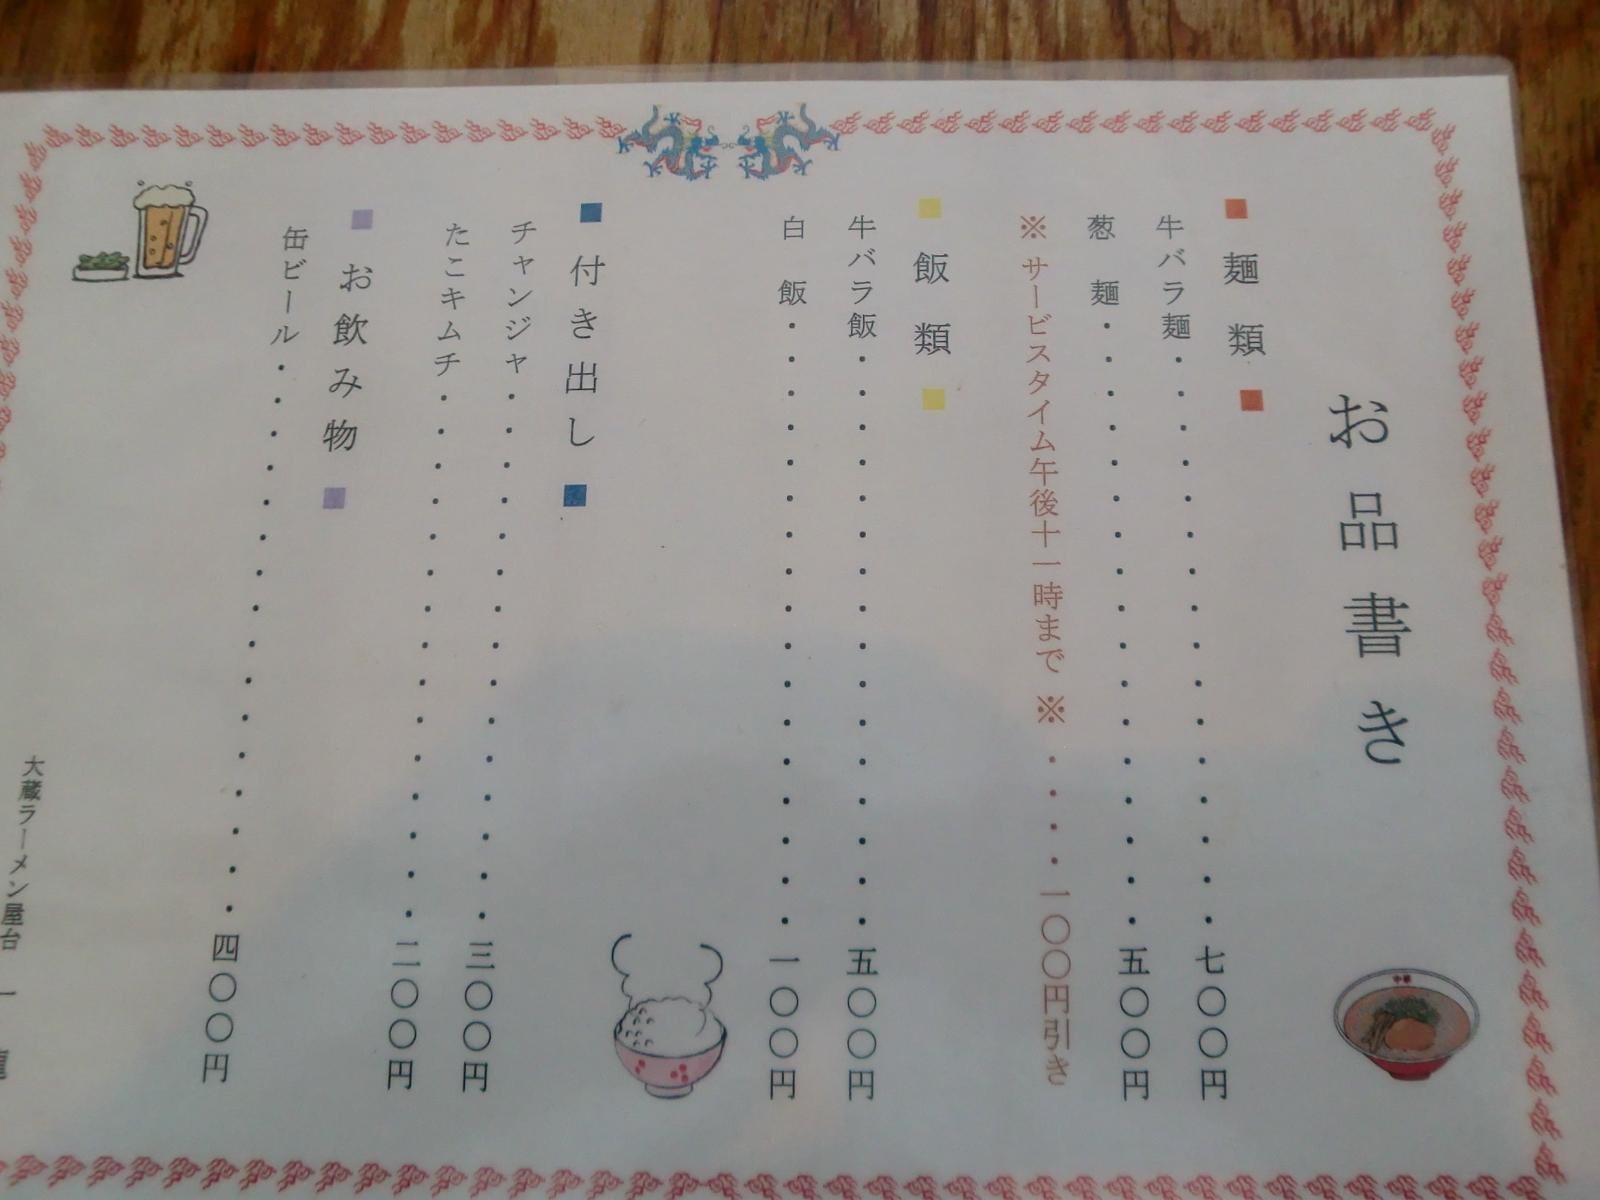 お品書き
■麺類■
牛バラ麺・・・・・・・・・・・・・・・・・七〇〇円
葱麺・・・・・・・・・・・・・・・・・・五〇〇円
※サービスタイム午後十一時まで※・・・・一〇〇円引き
■飯類■
牛バラ飯・・・・・・・・・・・・・・・・・五〇〇円
白飯・・・・・・・・・・・・・・・・・・一〇〇円
■付き出し■
チャンジャ・・・・・・・・・・・・・・・・三〇〇円
たこキムチ・・・・・・・・・・・・・・・・二〇〇円
■お飲み物■
缶ビール・・・・・・・・・・・・・・・・・四〇〇円
大蔵ラーメン屋台 一龍
中華